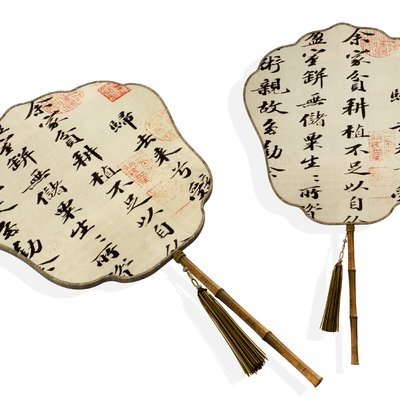 歸去來兮
余家貧耕植不足以自
室缾無儲粟生〻所
多勸〻
余家貧耕植不足以自
盈室缾無儲粟生〻所
術親故多勸〻